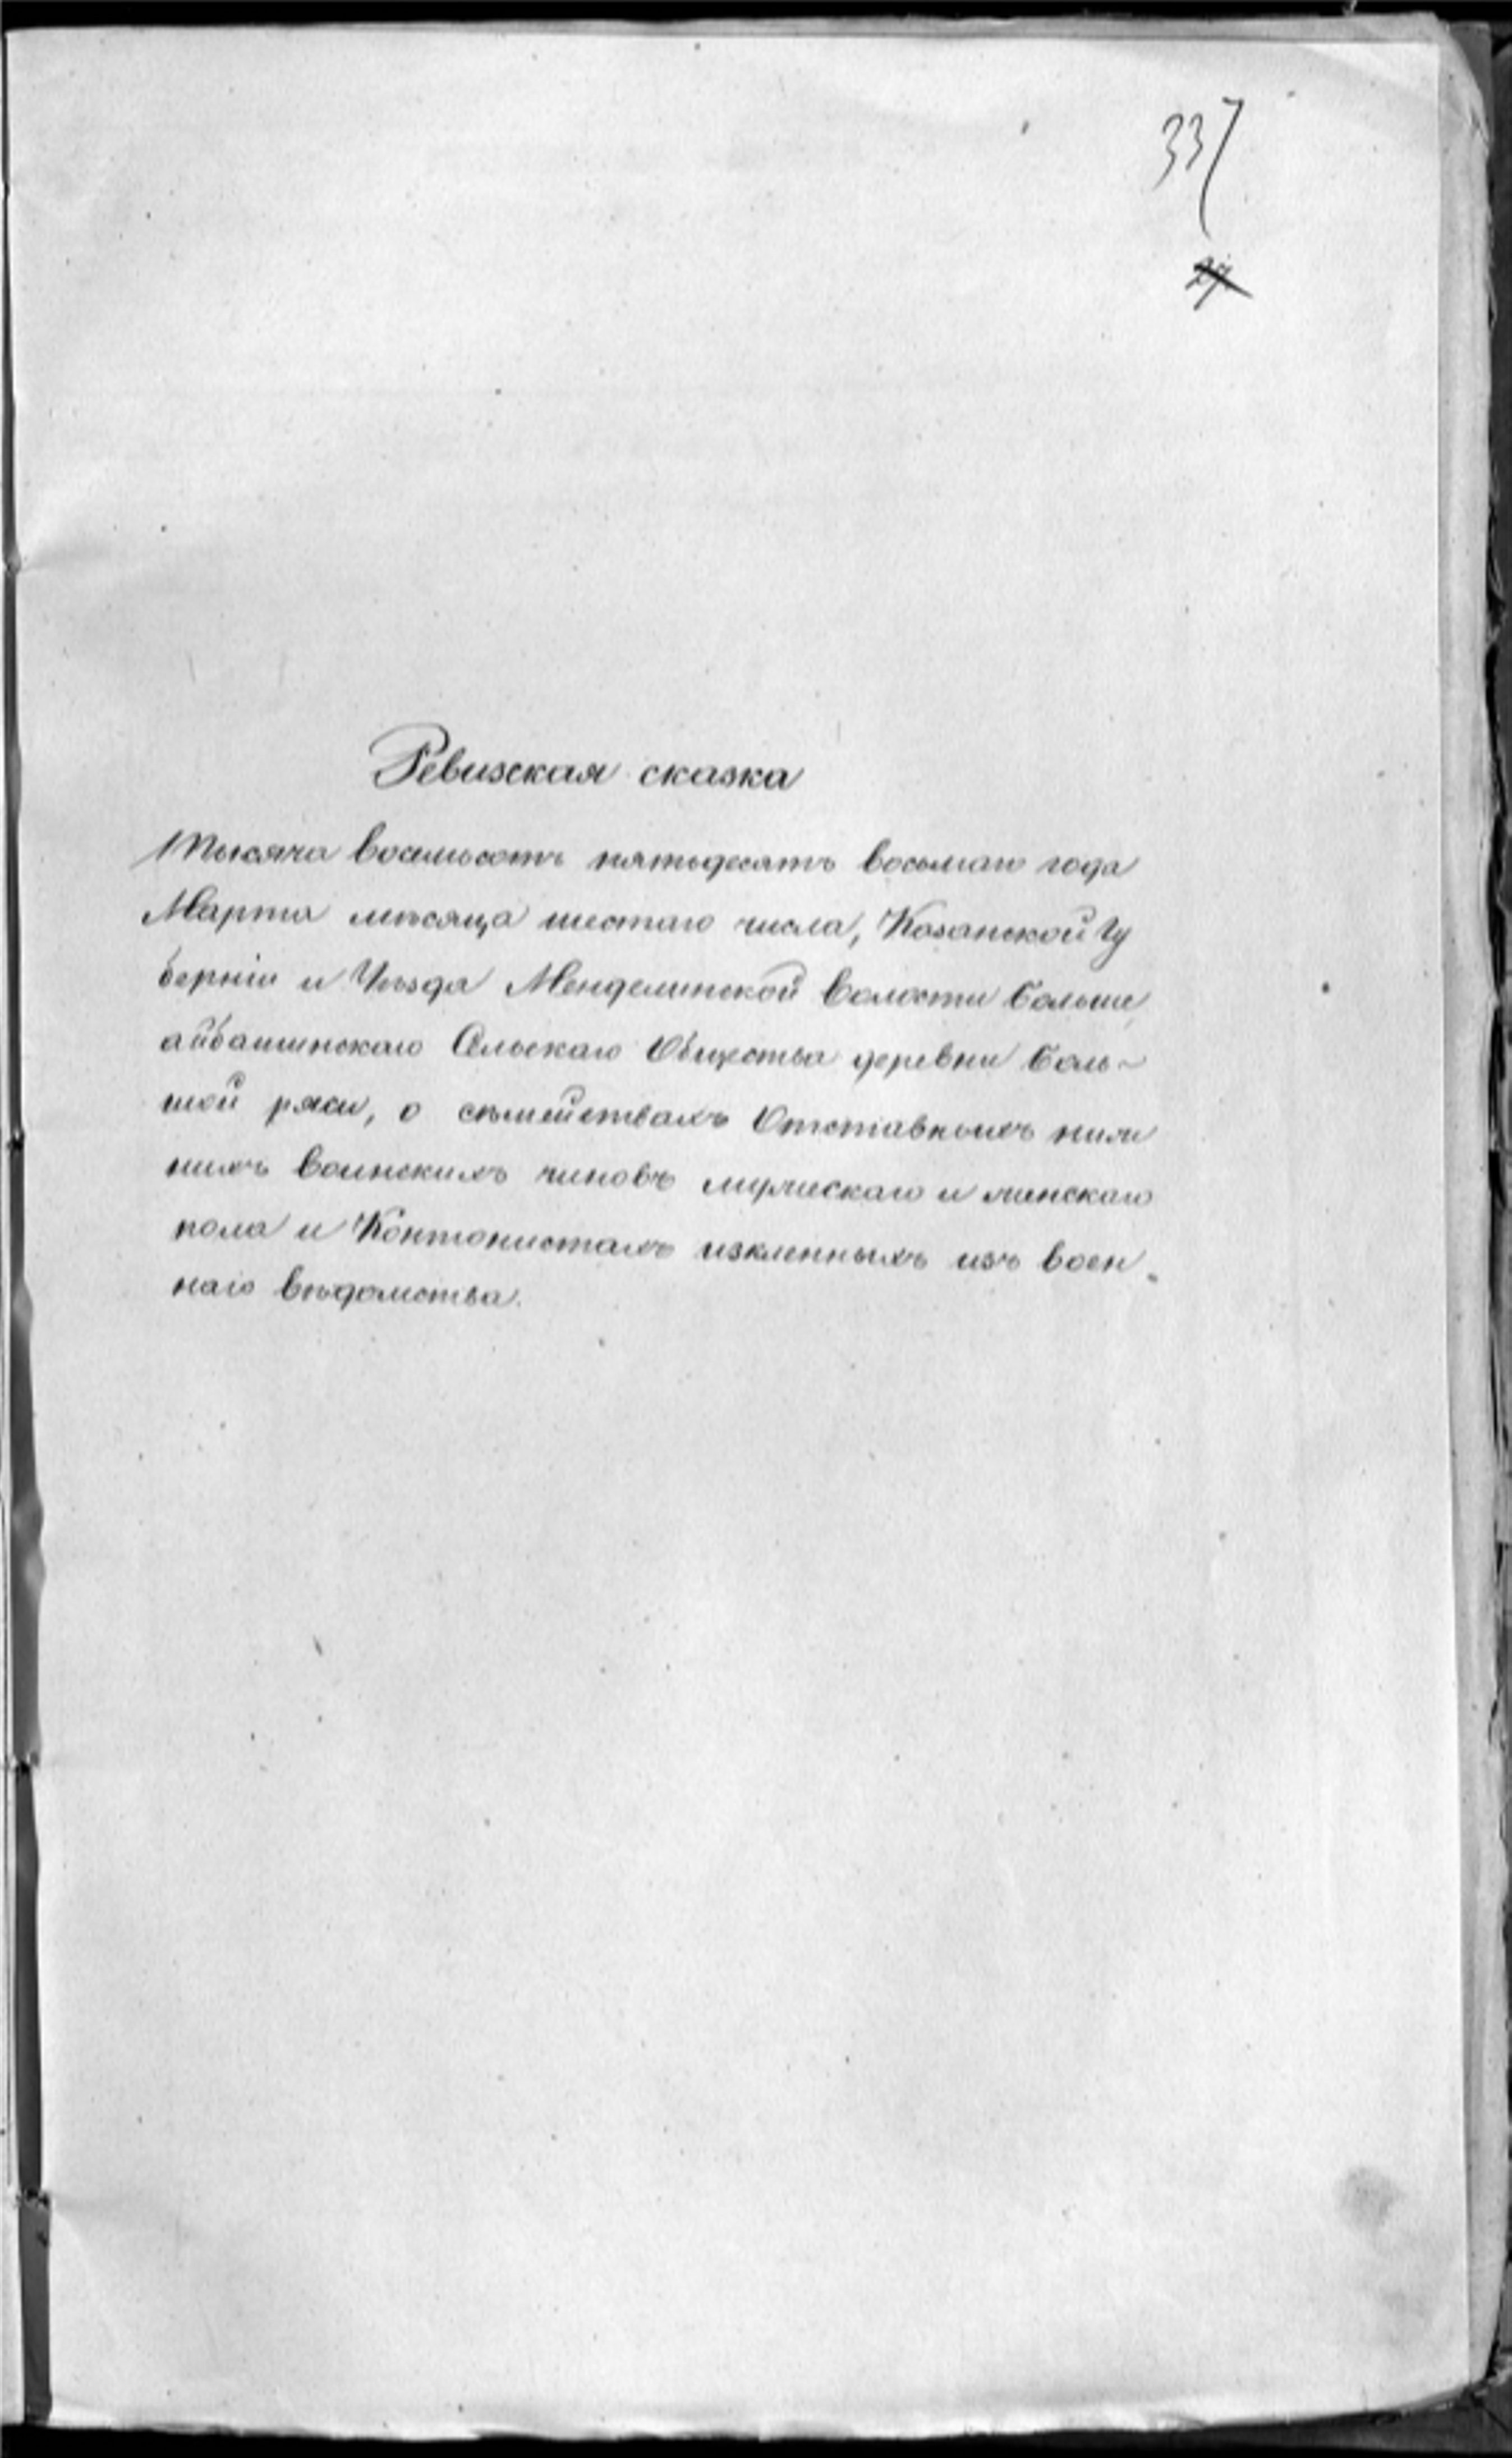 337
Ревизская сказка
Тысяча восемьсотъ пятьдесятъ восьмаго года
Марта мѣсяца шестаго числа, Казанской Гу
берніи и Уѣзда Менделинской волости больше
айбашинскаго Сельскаго Общества деревни Боль-
шой ряси, о сѣмействахъ Отставныхъ ниж
нихъ воинскихъ чиновъ мужескаго и женскаго
пола и Контонистахъ изключенныхъ изъ воен
наго вѣдомства.